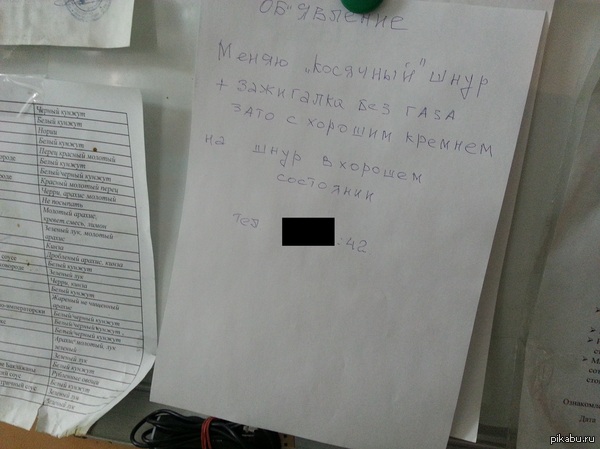 ОБЪЯВЛЕНИЕ
Меняю „косячный" шнур
+ зажигалка без газа
зато с хорошим кремнем
на шнур в хорошем
состоянии
тел :42
Черный кунжут
Белый кунжут
Нории
Белый кунжут
Перец красный молотый
Белый кунжут
Белый/черный кунжут
Красный молотый перец
Черри, арахис молотый
Не посыпать
Молотый арахис,
Зеленый лук, молотый
арахис
Кинза
Дробленый арахис, кинза
Белый кунжут
Зеленый лук
Черри, кинза
Белый кунжут
арахис
Белый/черный кунжут
Белый/черный кунжут
Арахис молотый, лук
зеленый
Зеленый лук
Белый кунжут
Белый кунжут
Зеленый лук
Ознакомле
Дата
pikabu.ru